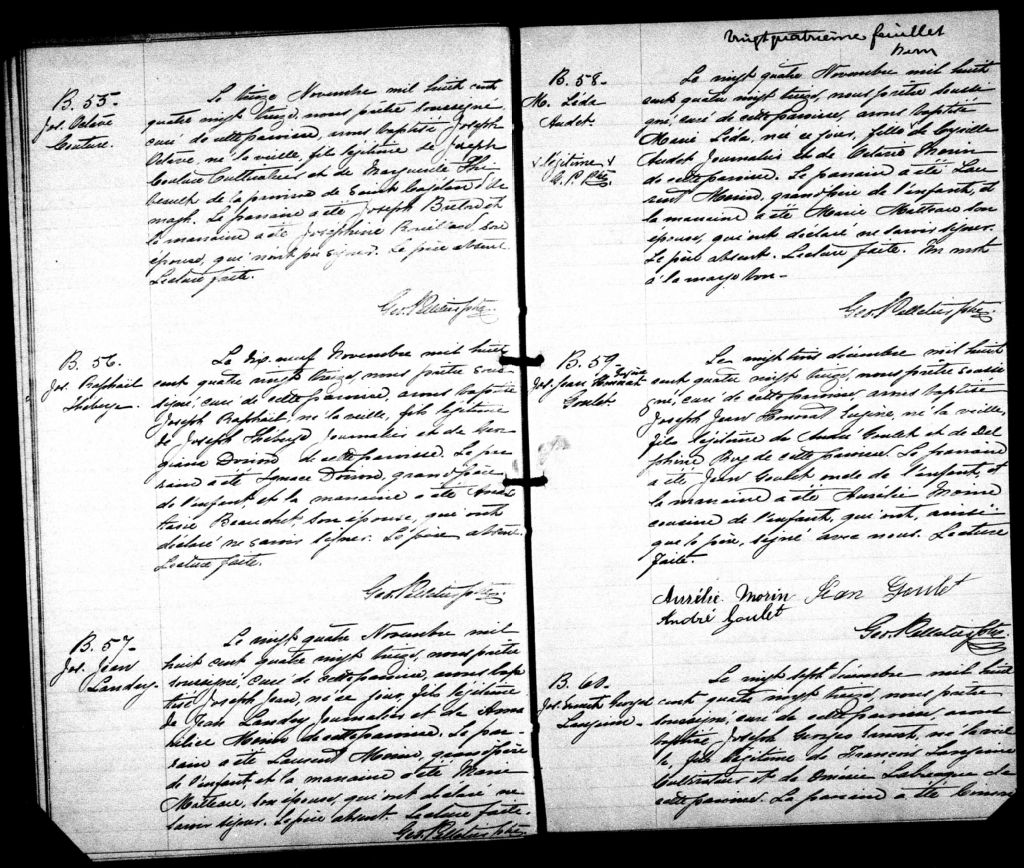 B. 55-
Jos. Octave
Couture.
Le treize Novembre mil huit cent
quatre vingt treize, nous prêtre soussigné,
curé de cette paroisse, avons baptisé Joseph
Octave, né la veille, fils légitime de Joseph
Couture Cultivateur et de Marguerite Thi
beault de la paroisse de Saint Cajetan d'Ar
magh. Le parrain a été Joseph et
la marraine a été Josephine son
épouse, qui n'ont pu signer. Le père absent.
Lecture faite.
Geo. Pelletier ptre.
B. 56-
Jos. Raphaël
Theberge.
Le dix neuf Novembre mil huit
cent quatre vingt treize, nous prêtre sous-
signé, curé de cette paroisse, avons baptisé
Joseph Raphaël, né la veille, fils légitime
de Joseph Theberge Journalier et de Geor
giana Dorion de cette paroisse. Le par
rain a été Ignace Dorion, grand-père
de l'enfant, et la marraine a été Anas
tasie Beauchet son épouse, qui ont
déclaré ne savoir signer. Le père absent.
Lecture faite.
Geo. Pelletier ptre.
B. 57-
Jos. Jean
Landry.
Le vingt quatre Novembre mil
huit cent quatre vingt treize, nous prêtre
soussigné, curé de cette paroisse, avons bap
tisé Joseph Jean, né ce jour, fils légitime
de Jean Landry Journalier et de Anna
Morin de cette paroisse. Le par-
rain a été Laurent Morin, grand-père
de l'enfant, et la marraine a été Marie
Matteau, son épouse, qui ont déclaré ne
savoir signer. Le père absent. Lecture faite.
Geo. Pelletier ptre.
Vingtquatrième feuillet
B. 58-
M. Léda
Audet.
v légitime v
G. P. Ptre
Le vingt quatre Novembre mil huit
cent quatre vingt treize, nous prêtre soussi
gné, curé de cette paroisse, avons baptisé
Marie Léda, née ce jour, fille de
Audet Journalier et de Octavie Morin
de cette paroisse. Le parrain a été Lau
rent Morin, grand-père de l'enfant, et
la marraine a été Marie Matteau son
épouse, qui ont déclaré ne savoir signer.
Le père absent. Lecture faite. Un mot
à la marge bon-
Geo. Pelletier ptre.
B. 59
Jos. Jean Honorat
Eugène
Goulet.
Le vingt trois décembre mil huit
cent quatre vingt treize, nous prêtre soussi
gné, curé de cette paroisse, avons baptisé
Joseph Jean Honorat Eugène, né la veille,
fils légitime de André Goulet et de Del
phine Roy de cette paroisse. Le parrain
a été Jean Goulet oncle de l'enfant, et
la marraine a été Aurélie Morin
cousine de l'enfant, qui ont, ainsi
que le père, signé avec nous. Lecture
faite.
Aurélie Morin Jean Goulet
André Goulet
Geo. Pelletier ptre.
B. 60.
Jos. Georges
Langevin-
Le vingt sept décembre mil huit
cent quatre vingt treize, nous prêtre
soussigné, curé de cette paroisse, avons
baptisé, Joseph Georges né la veil
le, fils légitime de François Langevin
Cultivateur et de Labrecque de
cette paroisse. Le parrain a été